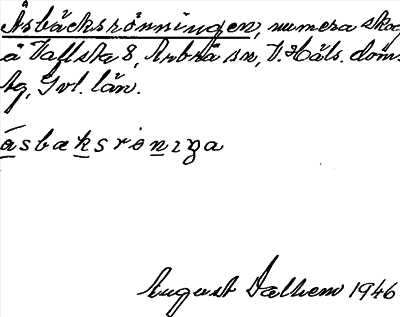 Åsbäcksrönningen, numera skog
å Vallsta 8, Arbrå sn, V. Häls. doms.
tg, Gvl. län.
åsbæksrøniga
August Dalhem 1946